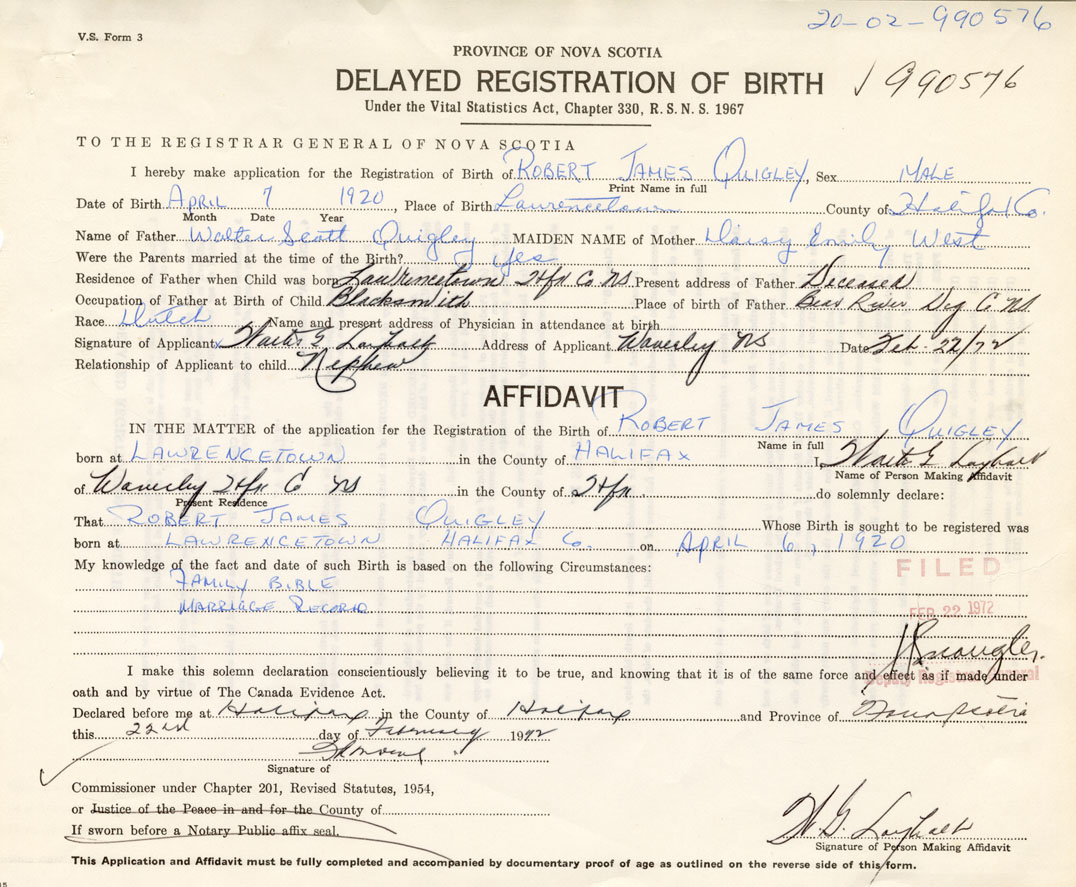 20-02-990576
V.S. Form 3
PROVINCE OF NOVA SCOTIA
DELAYED REGISTRATION OF BIRTH
990576
Under the Vital Statistics Act, Chapter 330, R.S.N.S. 1967
TO THE REGISTRAR GENERAL OF NOVA SCOTIA
I hereby make application for the Registration of Birth of ROBERT JAMES QUIGLEY, Sex MALE
Print Name in full
Date of Birth APRIL 7 1920, Place of Birth Lawrencetown County of Halifax Co.
Month Date Year
Name of Father Walter Scott Quigley MAIDEN NAME of Mother Daisy Emily West
Were the Parents married at the time of the Birth? yes
Residence of Father when Child was born Lawrencetown Hfx Co NS Present address of Father Deceased
Occupation of Father at Birth of Child Blacksmith Place of birth of Father Bear River Dig C. NS
Race Dutch Name and present address of Physician in attendance at birth
Signature of Applicant Address of Applicant Waverley NS Date Feb. 22/72
Relationship of Applicant to child Nephew
AFFIDAVIT
IN THE MATTER of the application for the Registration of the Birth of ROBERT JAMES QUIGLEY
Name in full
born at LAWRENCETOWN in the County of HALIFAX I,
Name of Person Making Affidavit
of Waverley Hfx C NS in the County of Hfx do solemnly declare:
Present Residence
That ROBERT JAMES QUIGLEY Whose Birth is sought to be registered was
born at LAWRENCETOWN HALIFAX Co. on APRIL 6, 1920
My knowledge of the fact and date of such Birth is based on the following Circumstances:
FILED
FAMILY BIBLE
MARRIAGE RECORD
FEB 22 1972
I make this solemn declaration conscientiously believing it to be true, and knowing that it is of the same force and effect as if made under
Deputy Registrar General
oath and by virtue of The Canada Evidence Act.
Declared before me at Halifax in the County of Halifax and Province of Nova Scotia
this 22nd day of February 1972
Signature of
Commissioner under Chapter 201, Revised Statutes, 1954,
or Justice of the Peace in and for the County of
If sworn before a Notary Public affix seal.
W. G.
Signature of Person Making Affidavit
This Application and Affidavit must be fully completed and accompanied by documentary proof of age as outlined on the reverse side of this form.